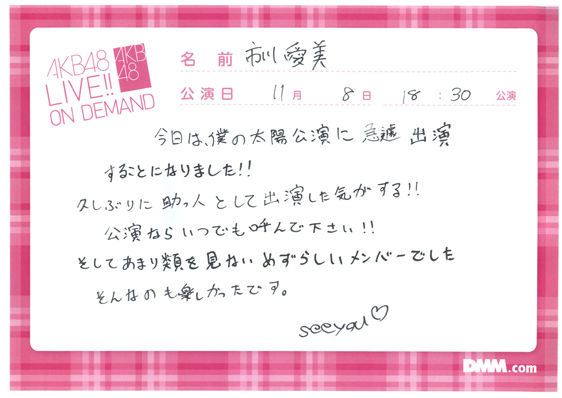 AKB48
LIVE!!
ON DEMAND
AKB
48
名 前 市川愛美
公演日 11月 8日 18:30 公演
今日は、僕の太陽公演に 急遽 出演
することになりました!!
久しぶりに 助っ人 として出演した気がする!!
公演ならいつでも呼んで下さい!!
そしてあまり類を見ない めずらしいメンバーでした
そんなのも楽しかったです。
seeyou♡
DMM.com